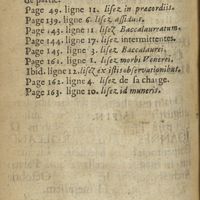 de partie.
Page 49. ligne 11. lisez in præcordiis.
Page 139. ligne 6. lisez assiduis.
Page 143. ligne 11. lisez Baccalaurratum.
Page 144. ligne 17. lisez intermittentes.
Page 145. ligne 3. lisez Baccalaurei.
Page 161. ligne 1. lisez morbi Venerei.
Ibid. ligne 12. lisez ex istis observationibus.
Page 162. ligne 4. lisez de sa charge.
Page 163. ligne 10. lisez id muneris.